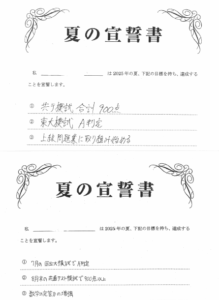 夏の宣誓書
私、は2025年の夏、下記の目標を持ち、達成する
ことを宣誓します。
① 共テ模試 合計 900点
② 東大模試 A判定
③ 上級問題集に取り組み始める
夏の宣誓書
私、は2025年の夏、下記の目標を持ち、達成する
ことを宣誓します。
① 7月の 模試で A判定
② 8月末の共通テスト模試で 900点以上
③ 数学の